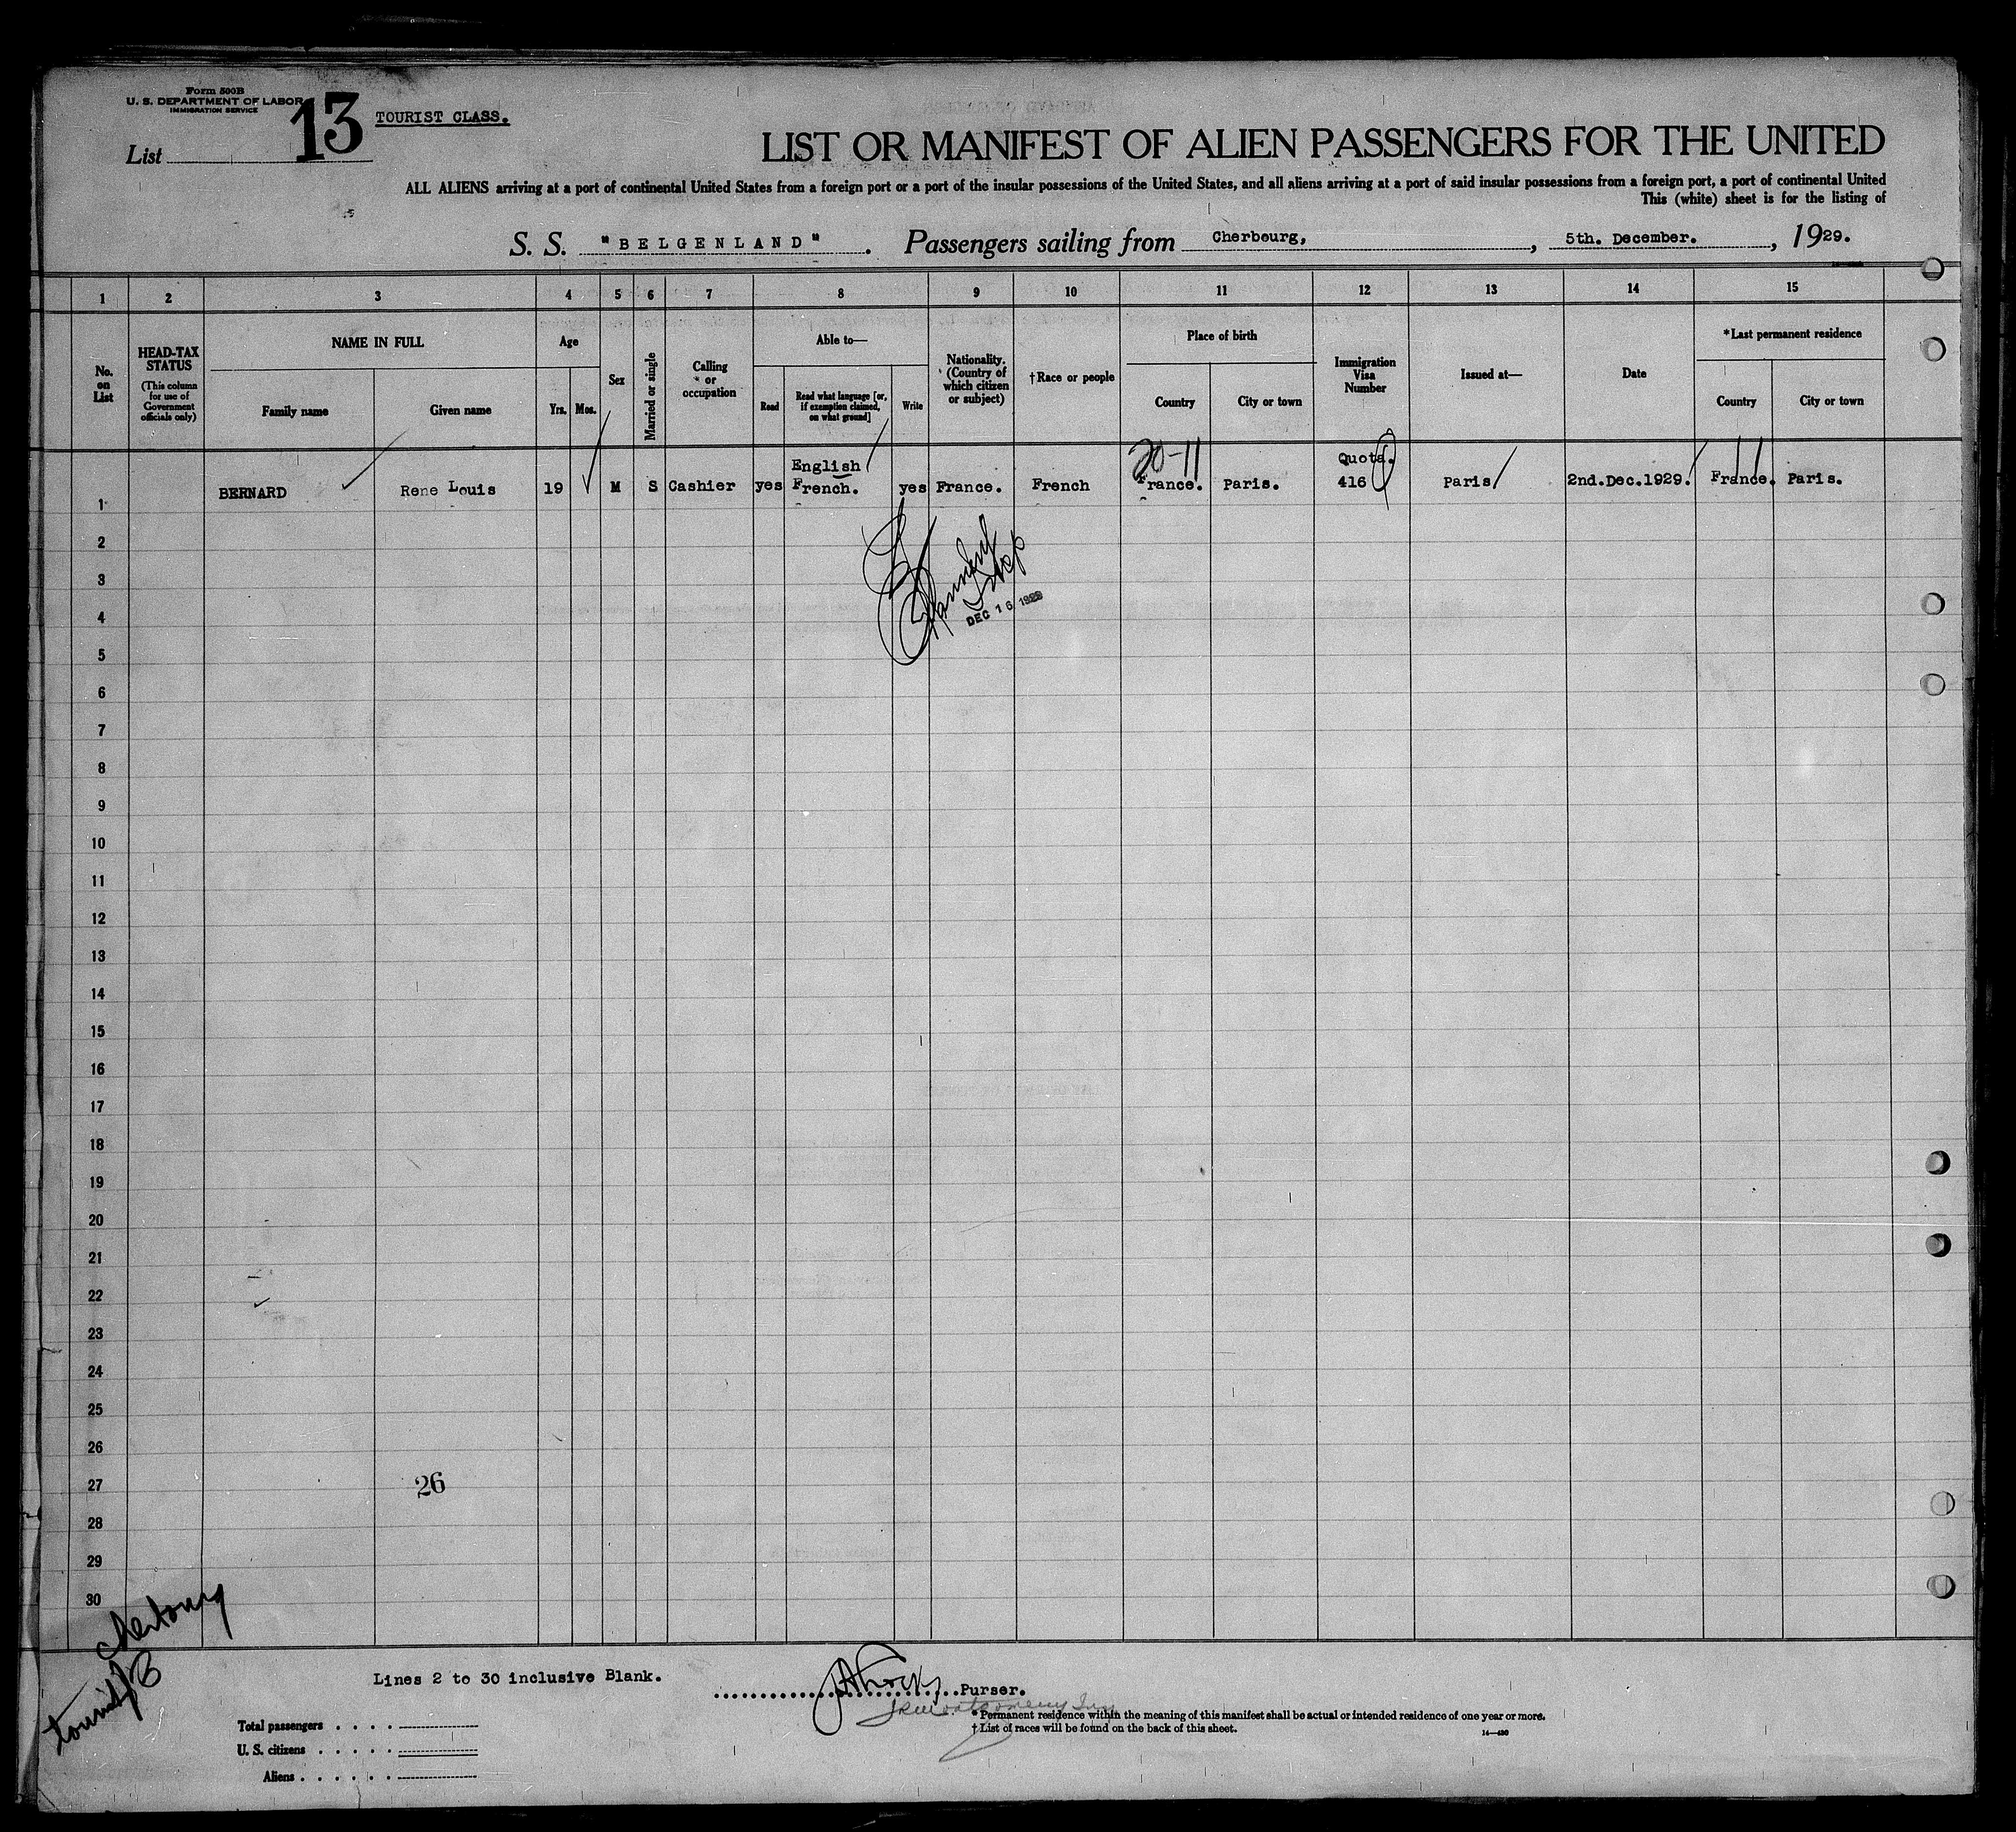 Form 500B
U. S. DEPARTMENT OF LABOR
IMMIGRATION SERVICE
List 13
TOURIST CLASS.
LIST OR MANIFEST OF ALIEN PASSENGERS FOR THE UNITED
ALL ALIENS arriving at a port of continental United States from a foreign port or a port of the insular possessions of the United States, and all aliens arriving at a port of said insular possessions from a foreign port, a port of continental United
This (white) sheet is for the listing of
S. S. "BELGENLAND". Passengers sailing from Cherbourg, , 5th. December. , 1929.
1 2 3 4 5 6 7 8 9 10 11 12 13 14 15
No. on List
HEAD-TAX STATUS
(This column for use of Government officials only)
NAME IN FULL
Family name
Given name
Age
Yrs. Mos.
Sex
Married or single
Calling or occupation
Able to—
Read
Read what language [or, if exemption claimed, on what ground]
Write
Nationality. (Country of which citizen or subject)
†Race or people
Place of birth
Country
City or town
Immigration Visa Number
Issued at—
Date
*Last permanent residence
Country
City or town
20-11
English Quota.
1 BERNARD Rene Louis 19 M S Cashier yes French. yes France. French France. Paris. 416 Paris 2nd.Dec.1929. France. Paris.
2
3
DEC 16 1929
4
5
6
7
8
9
10
11
12
13
14
15
16
17
18
19
20
21
22
23
24
25
26
27 26
28
29
30
Cherbourg
tourist B
Lines 2 to 30 inclusive Blank.
Purser.
Total passengers
U. S. citizens
Aliens
* Permanent residence within the meaning of this manifest shall be actual or intended residence of one year or more.
† List of races will be found on the back of this sheet.
14—430